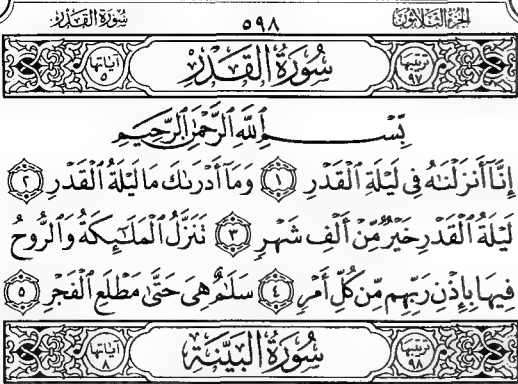 الجزء الثلاثون ٥٩٨ سورة القدر
ترتيبها ٩٧ سُورَةُ القَدْرِ آياتها ٥
بِسْمِ ٱللَّهِ ٱلرَّحْمَٰنِ ٱلرَّحِيمِ
إِنَّآ أَنزَلْنَٰهُ فِى لَيْلَةِ ٱلْقَدْرِ ١ وَمَآ أَدْرَىٰكَ مَا لَيْلَةُ ٱلْقَدْرِ ٢
لَيْلَةُ ٱلْقَدْرِ خَيْرٌ مِّنْ أَلْفِ شَهْرٍ ٣ تَنَزَّلُ ٱلْمَلَٰٓئِكَةُ وَٱلرُّوحُ
فِيهَا بِإِذْنِ رَبِّهِم مِّن كُلِّ أَمْرٍ ٤ سَلَٰمٌ هِىَ حَتَّىٰ مَطْلَعِ ٱلْفَجْرِ ٥
ترتيبها ٩٨ سُورَةُ البَيِّنَةِ آياتها ٨